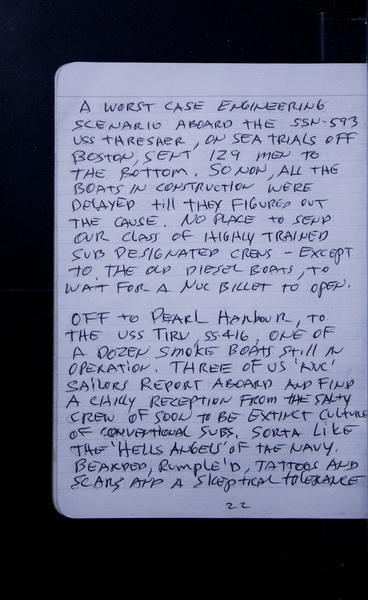 A WORST CASE ENGINEERING
SCENARIO ABOARD THE SSN-593
USS THRESHER, ON SEA TRIALS OFF
BOSTON, SENT 129 MEN TO
THE BOTTOM. SO NON, ALL THE
BOATS IN CONSTRUCTION WERE
DELAYED till THEY FIGURED OUT
THE CAUSE. NO PLACE to SEND
OUR CLASS OF HIGHLY TRAINED
SUB DESIGNATED CREWS - EXCEPT
TO THE OLD DIESEL BOATS, TO
WAIT FOR A NUC BILLET TO OPEN.
OFF to PEARL HARBOUR, TO
THE USS TIRU, SS416, ONE OF
A DOZEN SMOKE BOATS Still IN
OPERATION. THREE OF US 'NUC'
SAILORS REPORT ABOARD AND FIND
A CHILLY RECEPTION FROM THE SALTY
CREW OF SOON to BE EXTINCT CULTURE
OF CONVENTIONAL SUBS. SORTA LIKE
THE 'HELLS ANGELS' OF THE NAVY.
BEARDED, RUMPLE'D, TATTOOS AND
SCARS AND A SKEPTICAL TOLERANCE
22